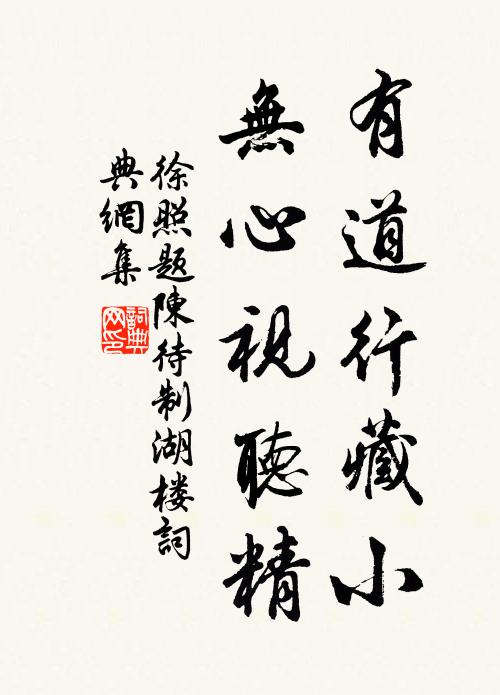 有道行藏小
無心視聽精
徐照题陳待制湖楼詞
典網集
詞典网印